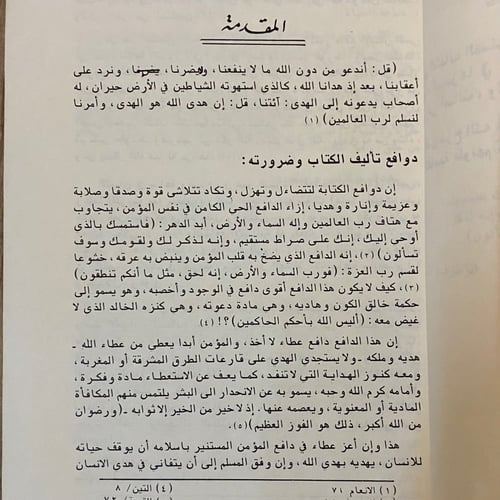 المقدمة
(قل: أندعو من دون الله ما لا ينفعنا، ولا يضرنا، يضرنا، ونرد على
أعقابنا، بعد إذ هدانا الله، كالذي استهوته الشياطين في الأرض حيران، له
أصحاب يدعونه إلى الهدى: آئتنا، قل: إن هدى الله هو الهدى، وأمرنا
لنسلم لرب العالمين) (١)
دوافع تأليف الكتاب وضرورته:
إن دوافع الكتابة لتتضاءل وتهزل، وتكاد تتلاشى قوة وصدقا وصلابة
وعزيمة وإنارة وهديا، إزاء الدافع الحي الكامن في نفس المؤمن، يتجاوب
مع هتاف رب العالمين وإله السماء والأرض، أبد الدهر: (فاستمسك بالذي
أوحي إليك، إنك على صراط مستقيم، وإنه لذكر لك ولقومك وسوف
تسألون) (٢)، إنه الدافع الذي يضخ به قلب المؤمن وينبض به عرقه، خشوعا
لقسم رب العزة: (فورب السماء والأرض، إنه لحق، مثل ما أنكم تنطقون)
(٣)، كيف لا يكون هذا الدافع أقوى دافع في الوجود وأخصبه، وهو يسمو إلى
حكمة خالق الكون وهاديه، وهي مادة دعوته، وهي كنزه الخالد الذي لا
غيض معه: (أليس الله بأحكم الحاكمين)؟! (٤)
إن هذا الدافع دافع عطاء لا أخذ، والمؤمن أبدا يعطي من عطاء الله ـ
هديه وملكه ـ ولا يستجدي الهدي على قارعات الطرق المشرقة أو المغربة،
ومعه كنوز الهداية التي لا تنفد، كما يعف عن الاستعطاء مادة وفكرة،
وأمامه كرم الله وحبه، يسمو به عن الانحدار الى البشر يلتمس منهم المكافأة
المادية أو المعنوية، ويعصمه عنها. إذ لا خير من الخير إلا ثوابه ـ (ورضوان
من الله أكبر، ذلك هو الفوز العظيم) (٥).
هذا وإن أعز عطاء في دافع المؤمن المستنير بإسلامه أن يوقف حياته
للإنسان، يهديه بهدي الله، وإن وفق المسلم إلى أن يتفانى في هدي الانسان
(١) الانعام ٧١ (٤) التين/ ٨